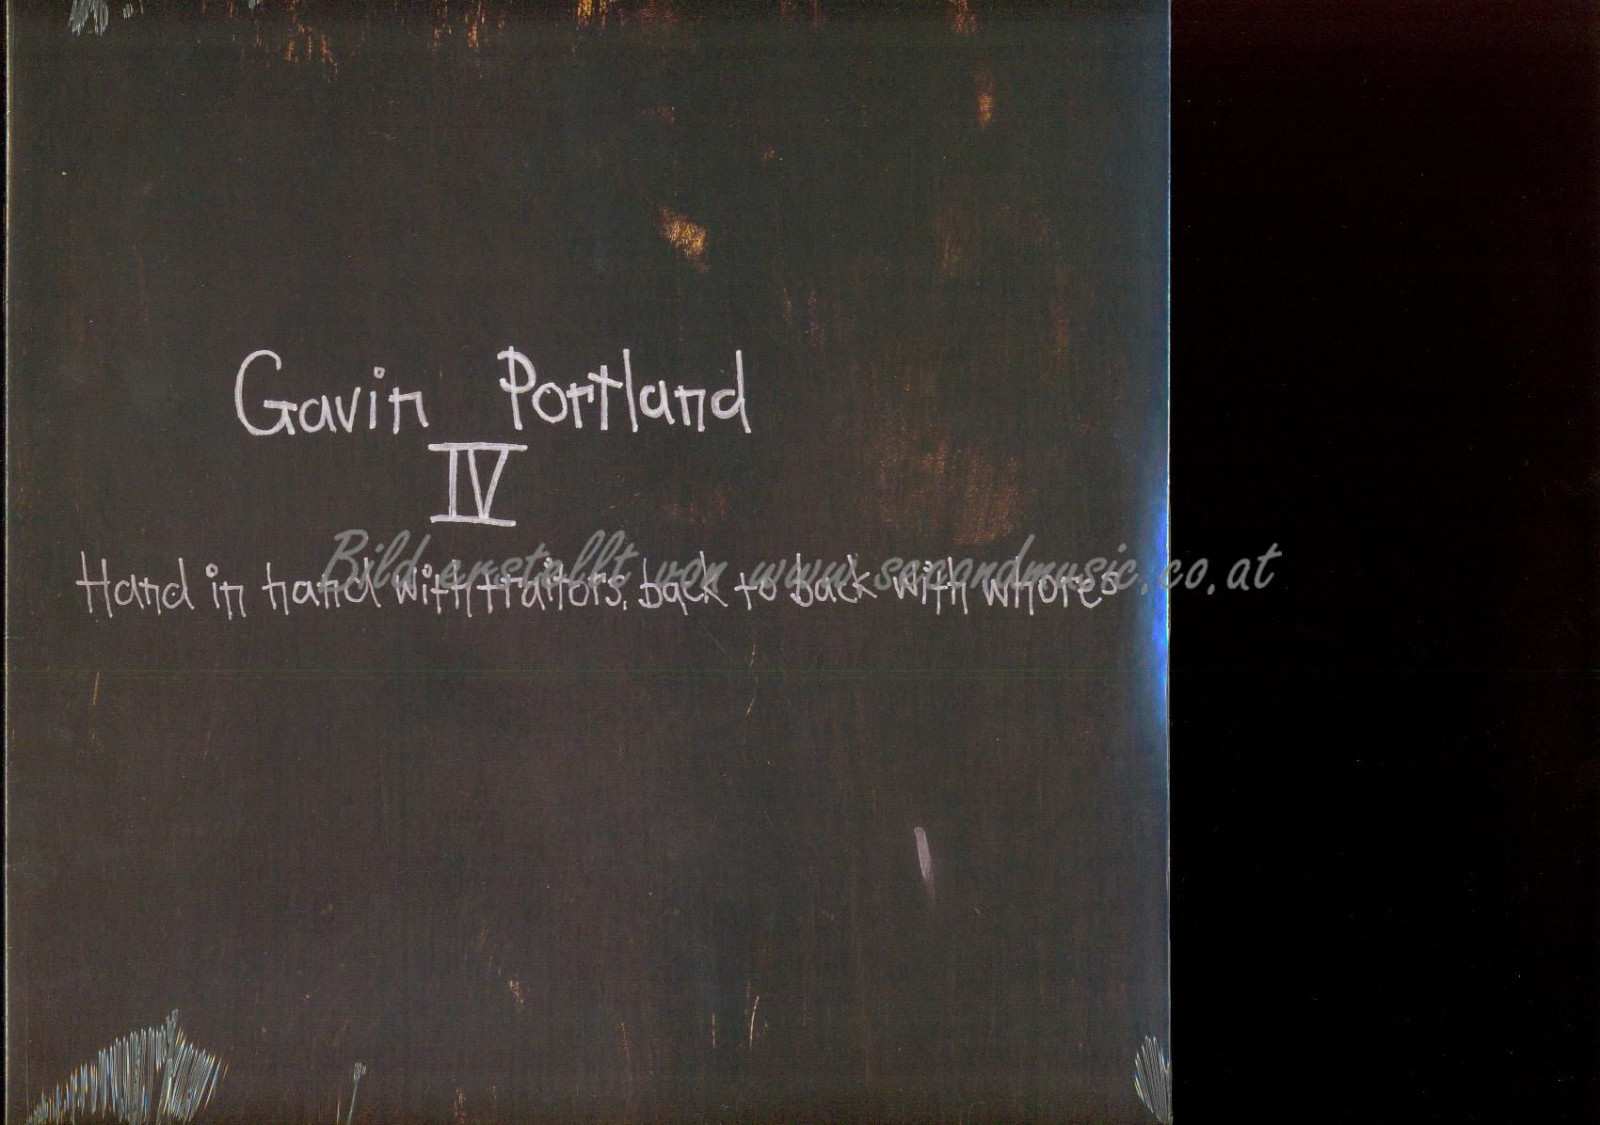 Gavin Portland
IV
Hand in hand with traitors, back to back with whores
Bild erstellt von www.secondmusic.co.at